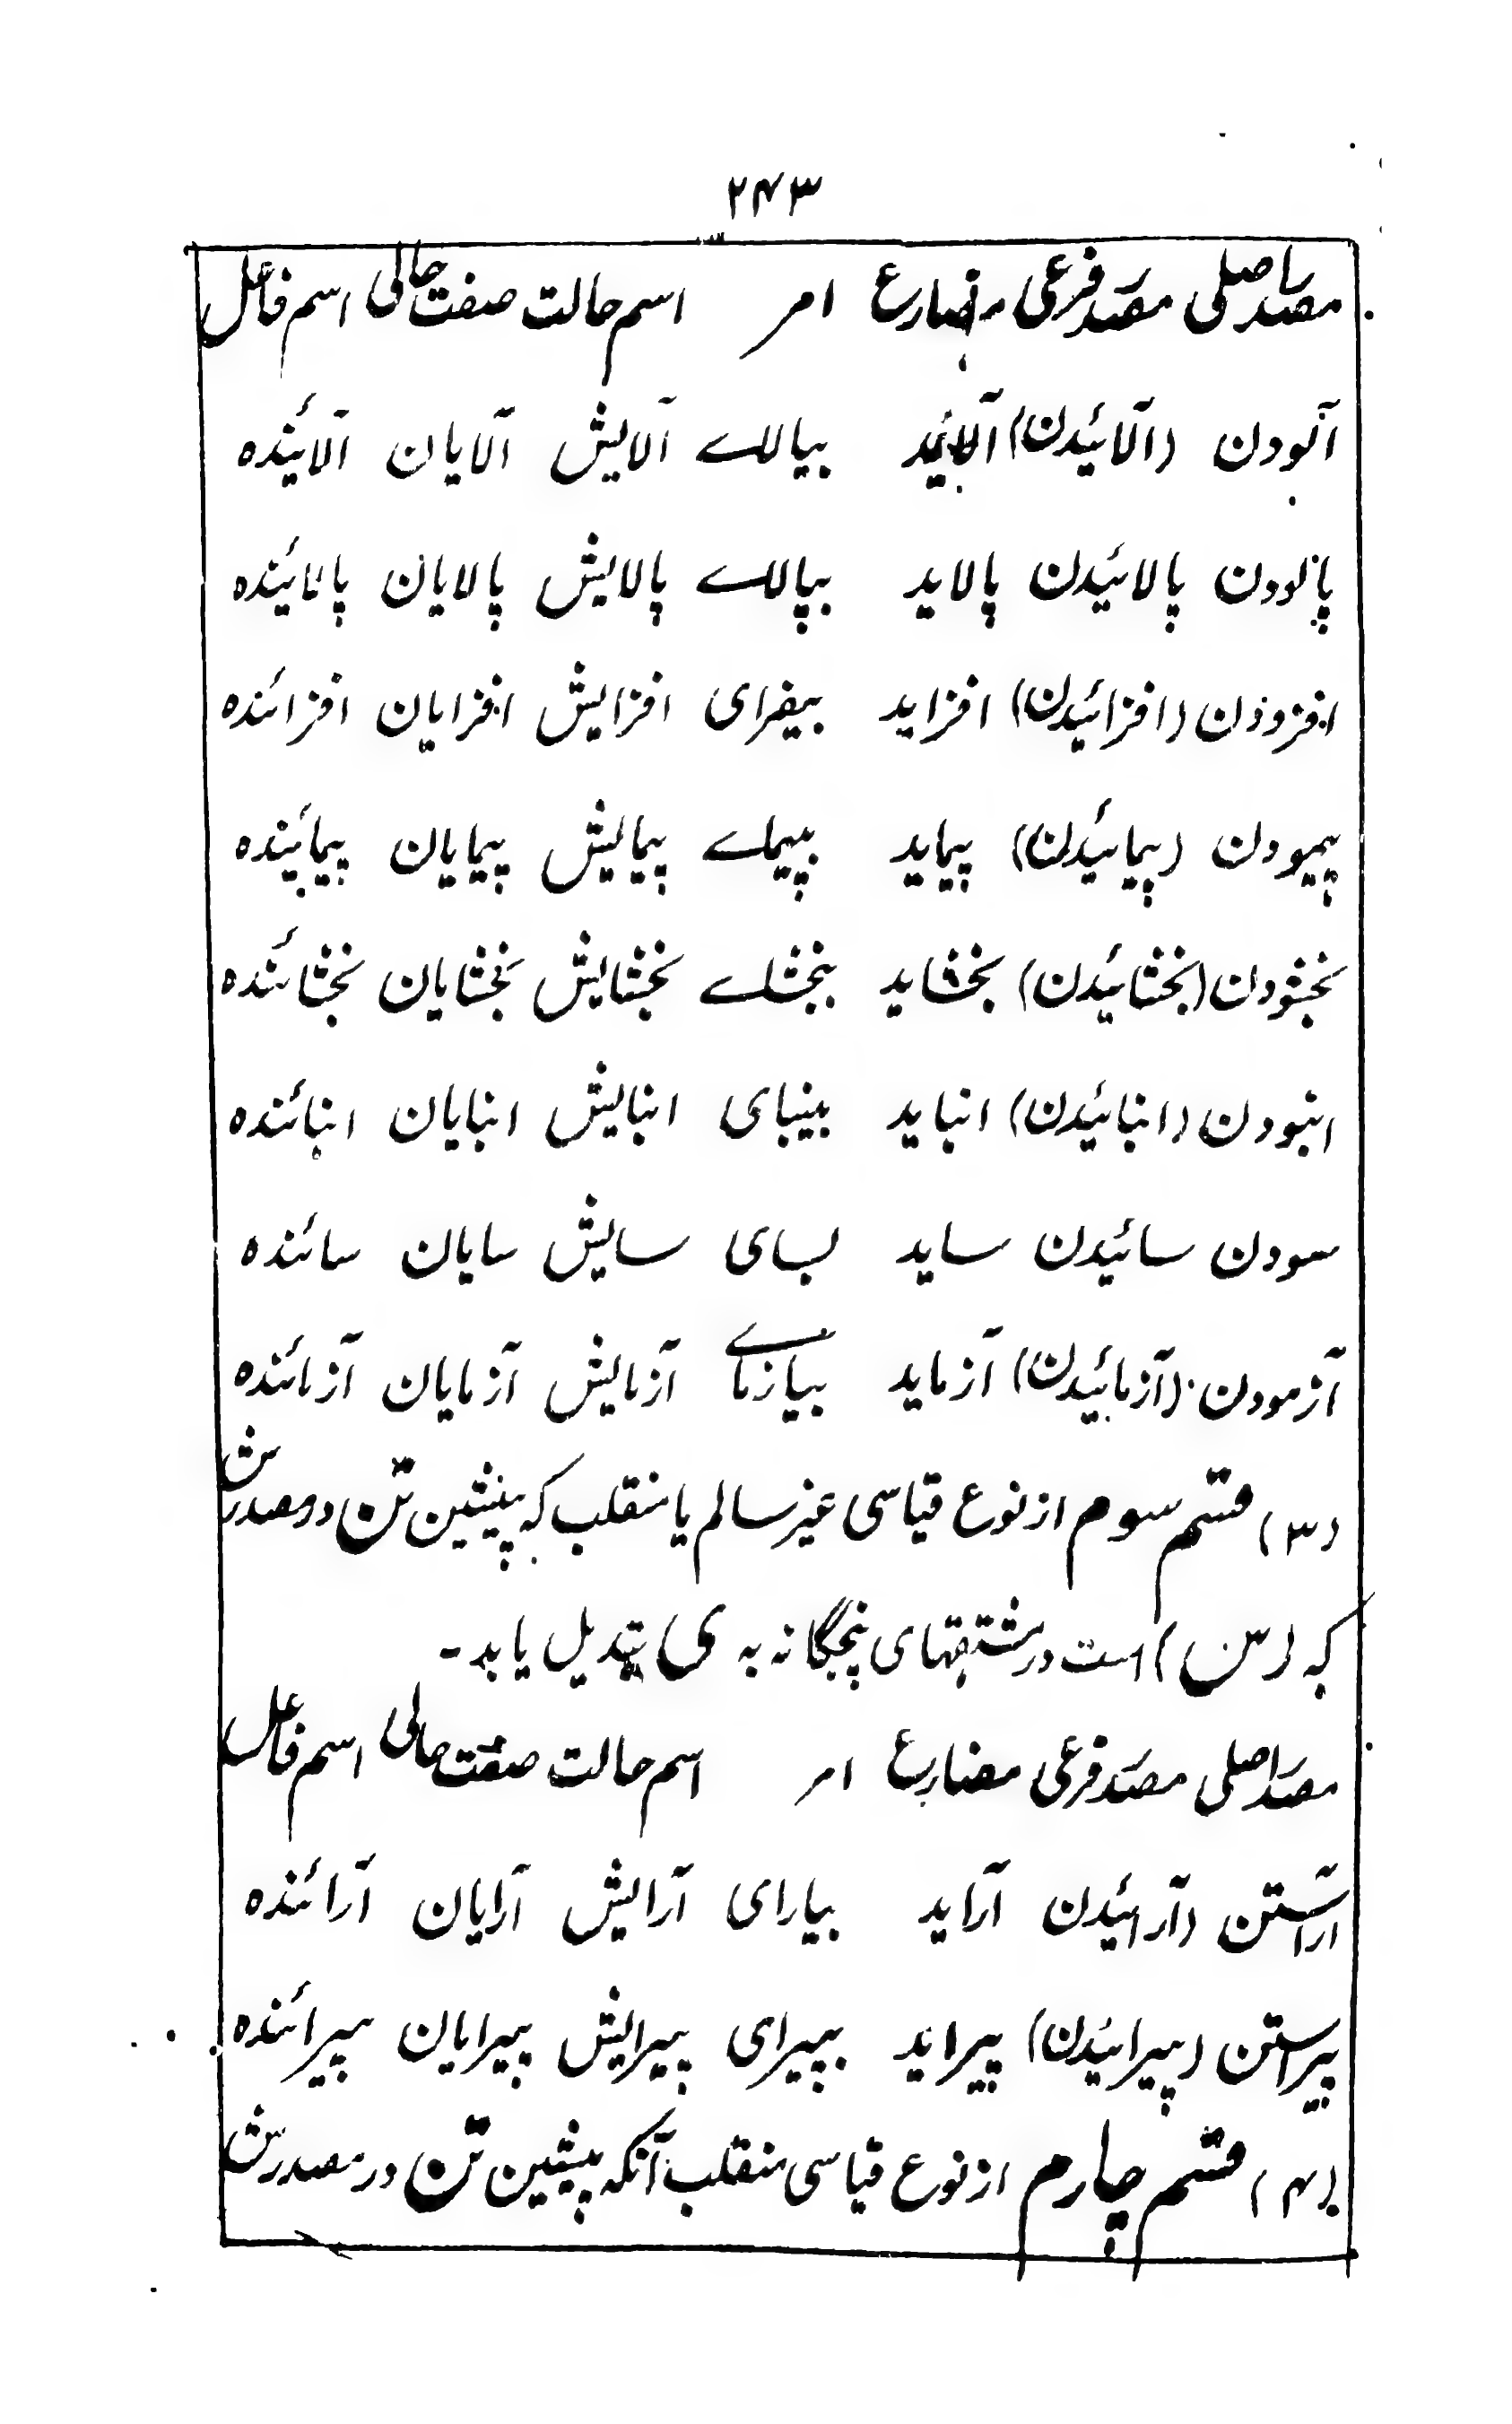 ۲۴۳
مصدر اصلی مصدر فرعی مضارع امر اسم حالت صفت حالی اسم فاعل
آلودن (آلائیدن) آلاید بیالاے آلایش آلایان آلائنده
پالودن پالائیدن پالاید بپالاے پالایش پالایان پالائنده
افزودن (افزائیدن) افزاید بیفزای افزایش افزایان افزائنده
پیمودن (پیمائیدن) پیماید بپیماے پیمایش پیمایان پیمائنده
بخشودن (بخشائیدن) بخشاید ببخشاے بخشایش بخشایان بخشائنده
انبودن (انبائیدن) انباید بینبای انبایش انبایان انبائنده
سودن سائیدن ساید بسای سایش سایان سائنده
آزمودن (آزمائیدن) آزماید بیازماے آزمایش آزمایان آزمائنده
(۳) قسم سوم از نوع قیاسی غیر سالم یا منقلب که پیشین تن در مصدرش
که (س) است در مشتقهای پنجگانه به ی تبدیل یابد ـ
مصدر اصلی مصدر فرعی مضارع امر اسم حالت صفت حالی اسم فاعل
آراستن (آرائیدن آراید بیارای آرایش آرایان آرائنده
پیراستن (پیرائیدن) پیراید بپیرای پیرایش پیرایان پیرائنده
(۴) قسم چارم از نوع قیاسی منقلب آنکه پیشین تن در مصدرش